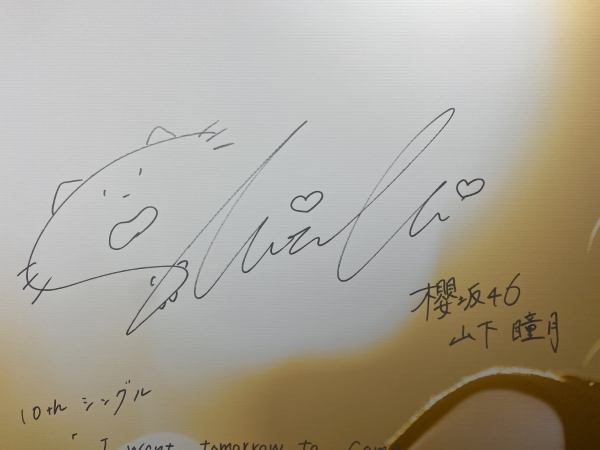 櫻坂46
山下 瞳月
10th シングル
「I want tomorrow to come